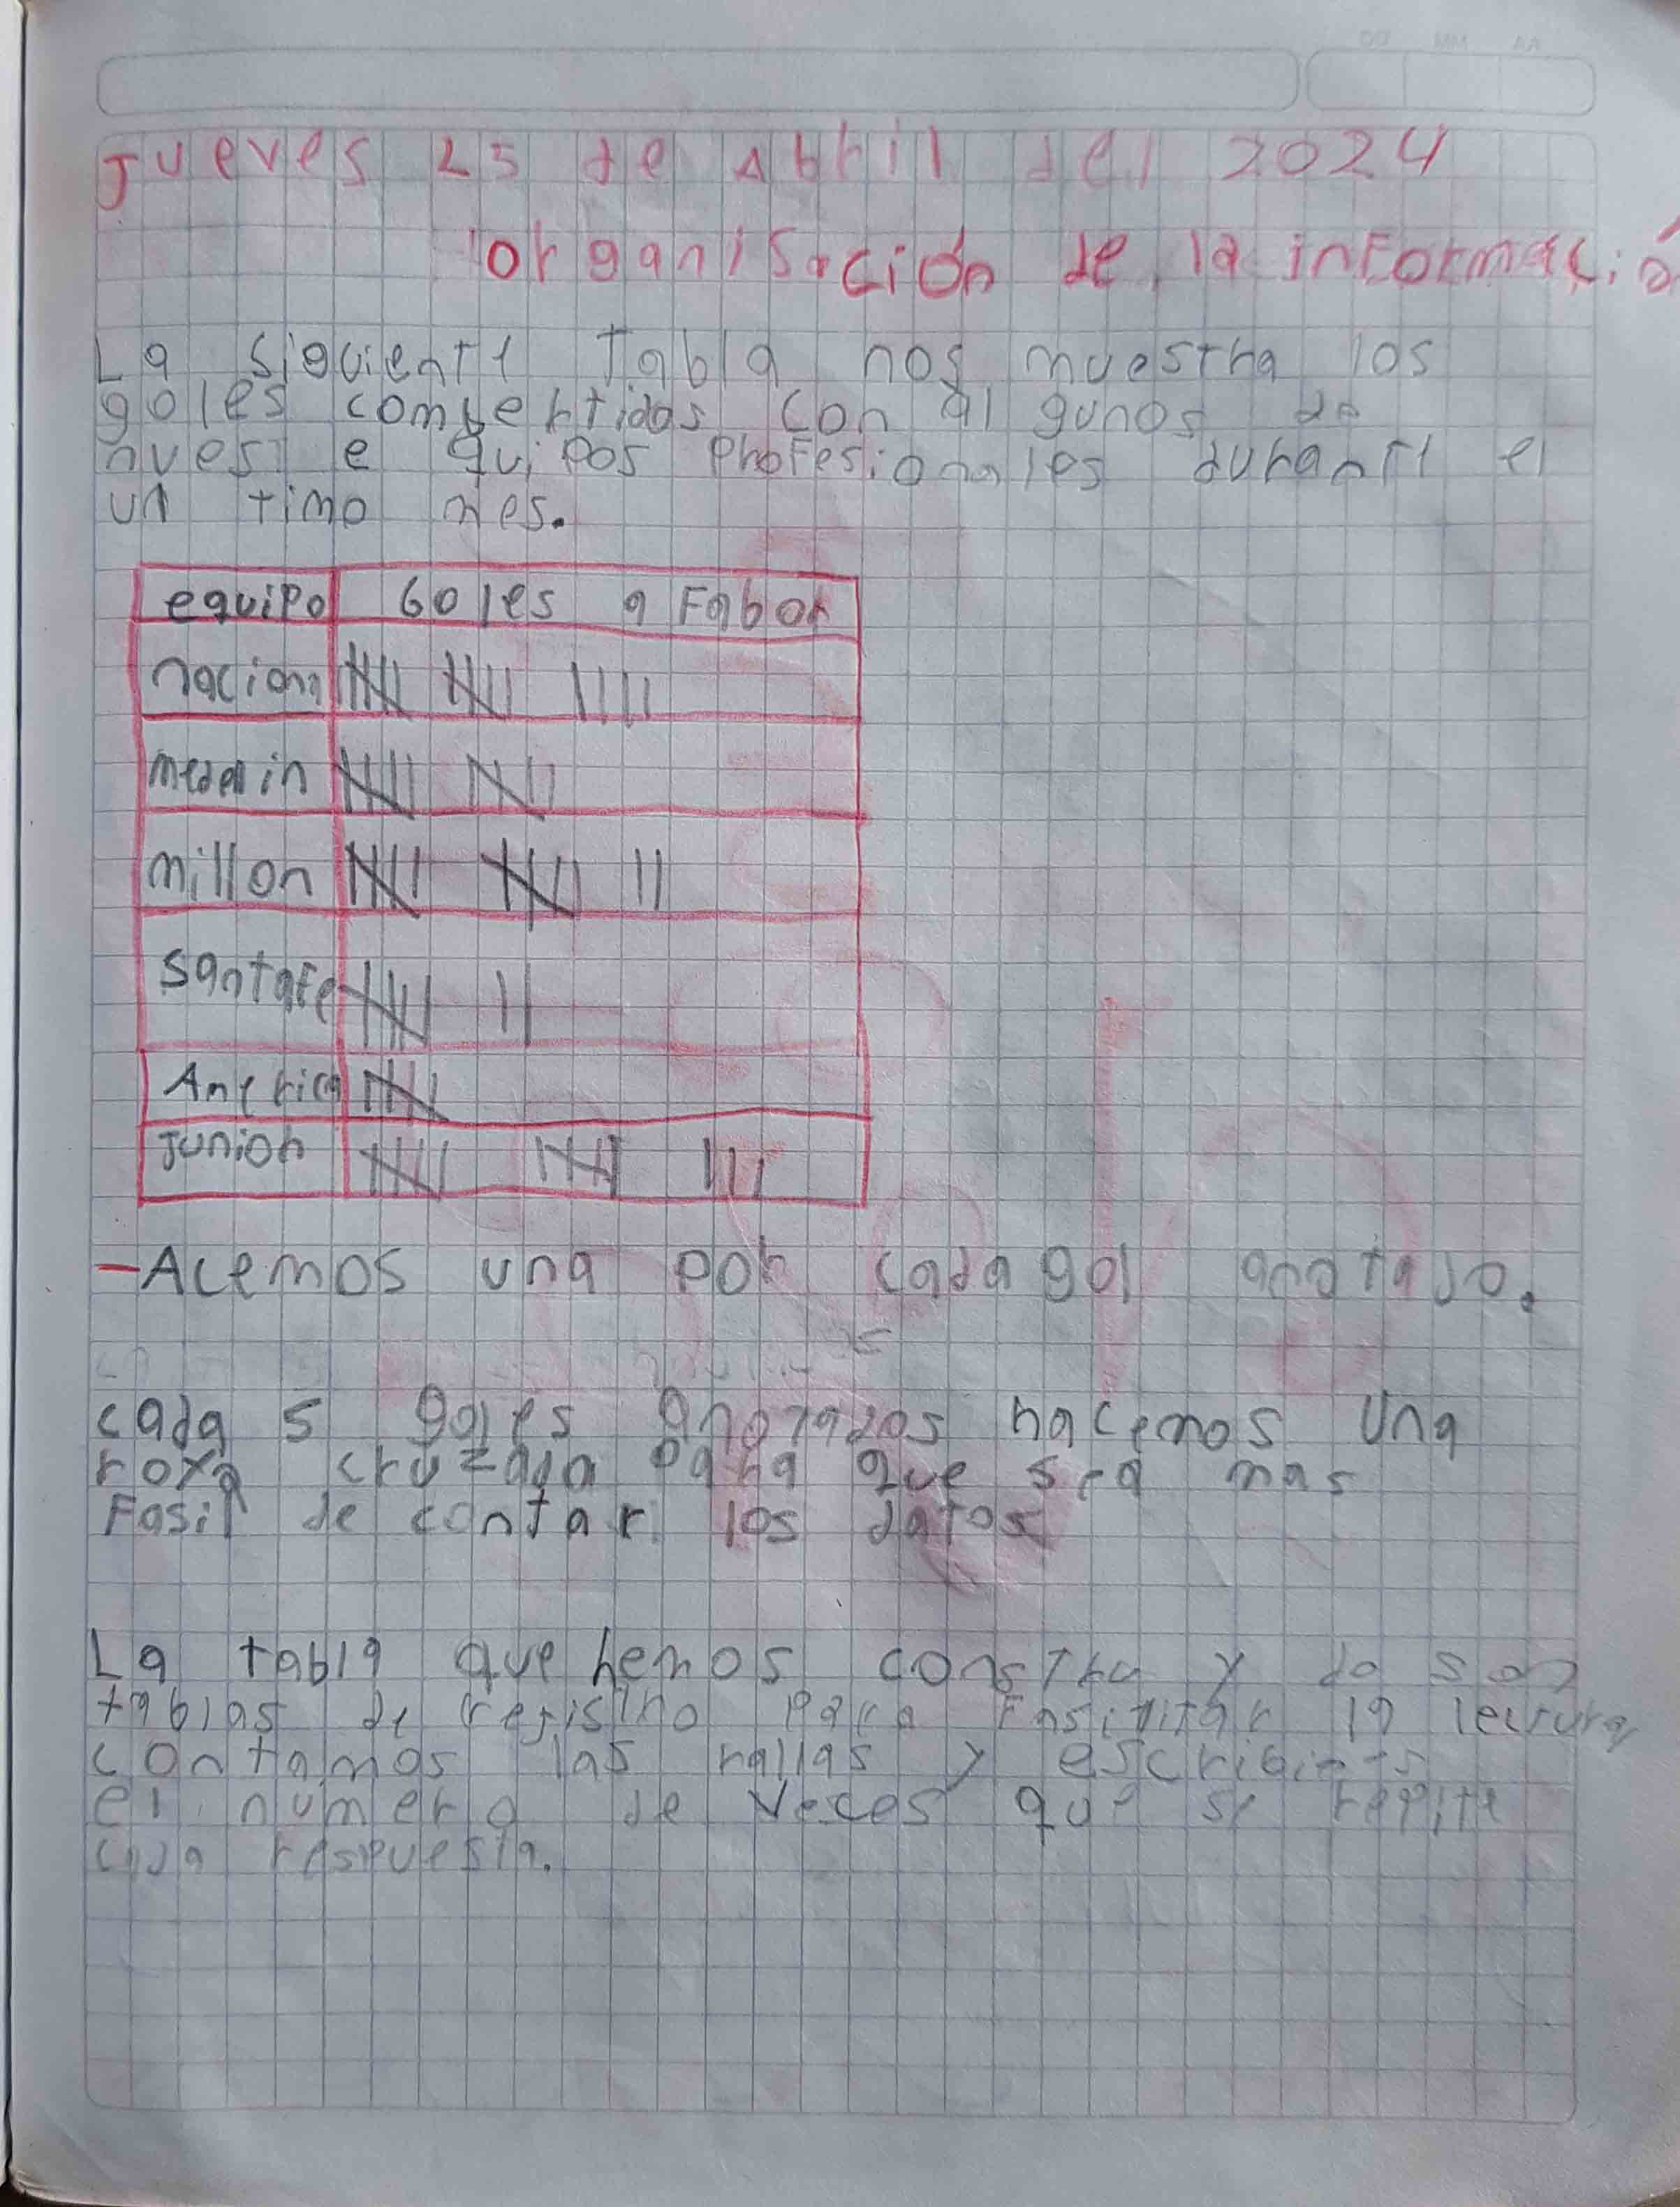 AA MM DD
Jueves 25 de Abril del 2024
organisación de la informació
La siguiente Tabla nos muestra los
goles comvertidos con al gunos de
nuest e quipos profesionales durante el
ul timo mes.
equipo Goles a Fabor
naciona 卌 卌 ||||
medellin 卌 卌
millon 卌 卌 ||
santafe 卌 ||
America 卌
Junior 卌 卌 |||
-Acemos una por cada gol anotado.
cada 5 goles anotados hacemos una
cruzada para que sea mas
Fasil de contar los datos
La tabla que hemos constru y do son
tablas de registro para la lectura
contamos las rallas y
el numero de veces que se repite
cada respuesta.